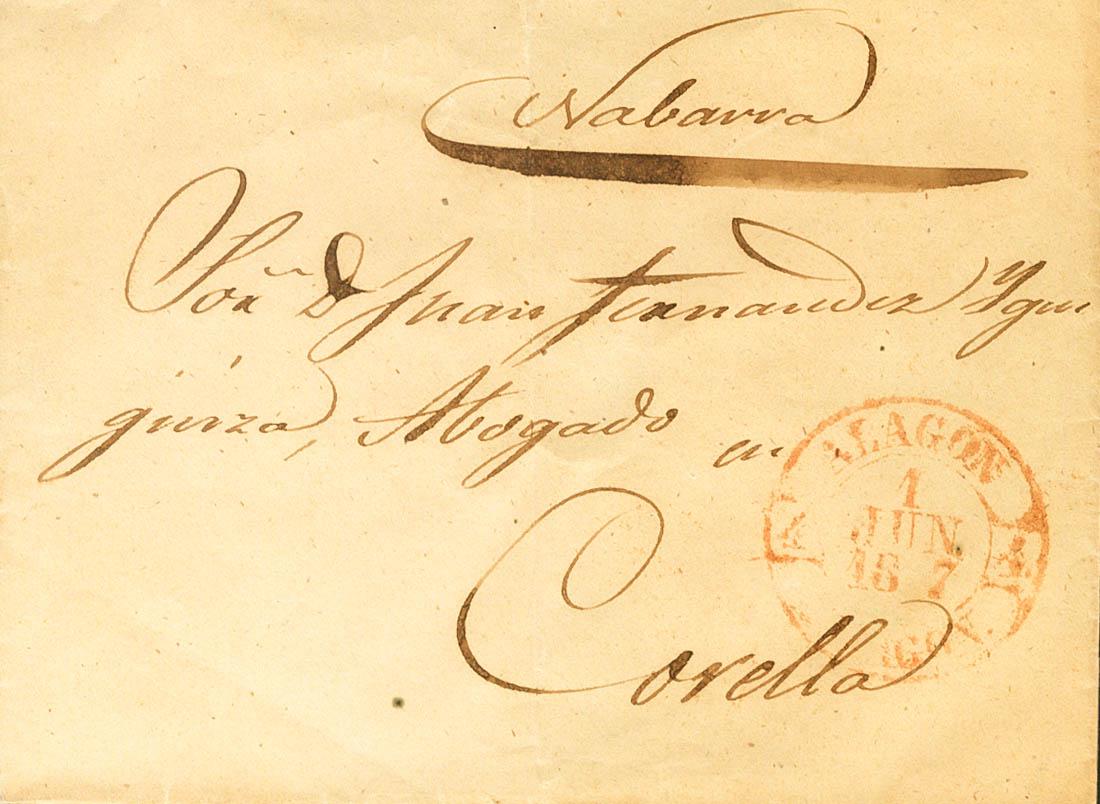 Nabarra
Señ D Juan Fernandez Ygui
guiza, Abogado en
Corella
ALAGON
1
JUN
18 7